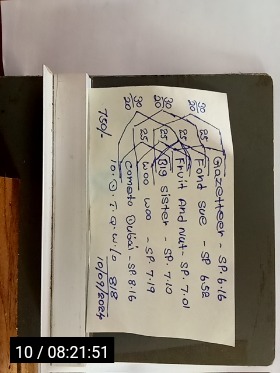 Gazetteer - SP. 6.16
Fond sue - SP 6.52
Fruit And Nut - SP. 7.01
Big sister - SP. 7.10
Woo Woo - SP. 7.19
Comoto Dubai - SP. 8.16
30
20
30
20
30
20
25
25
25
25
750/-
818
10/09/2024
10 / 08:21:51